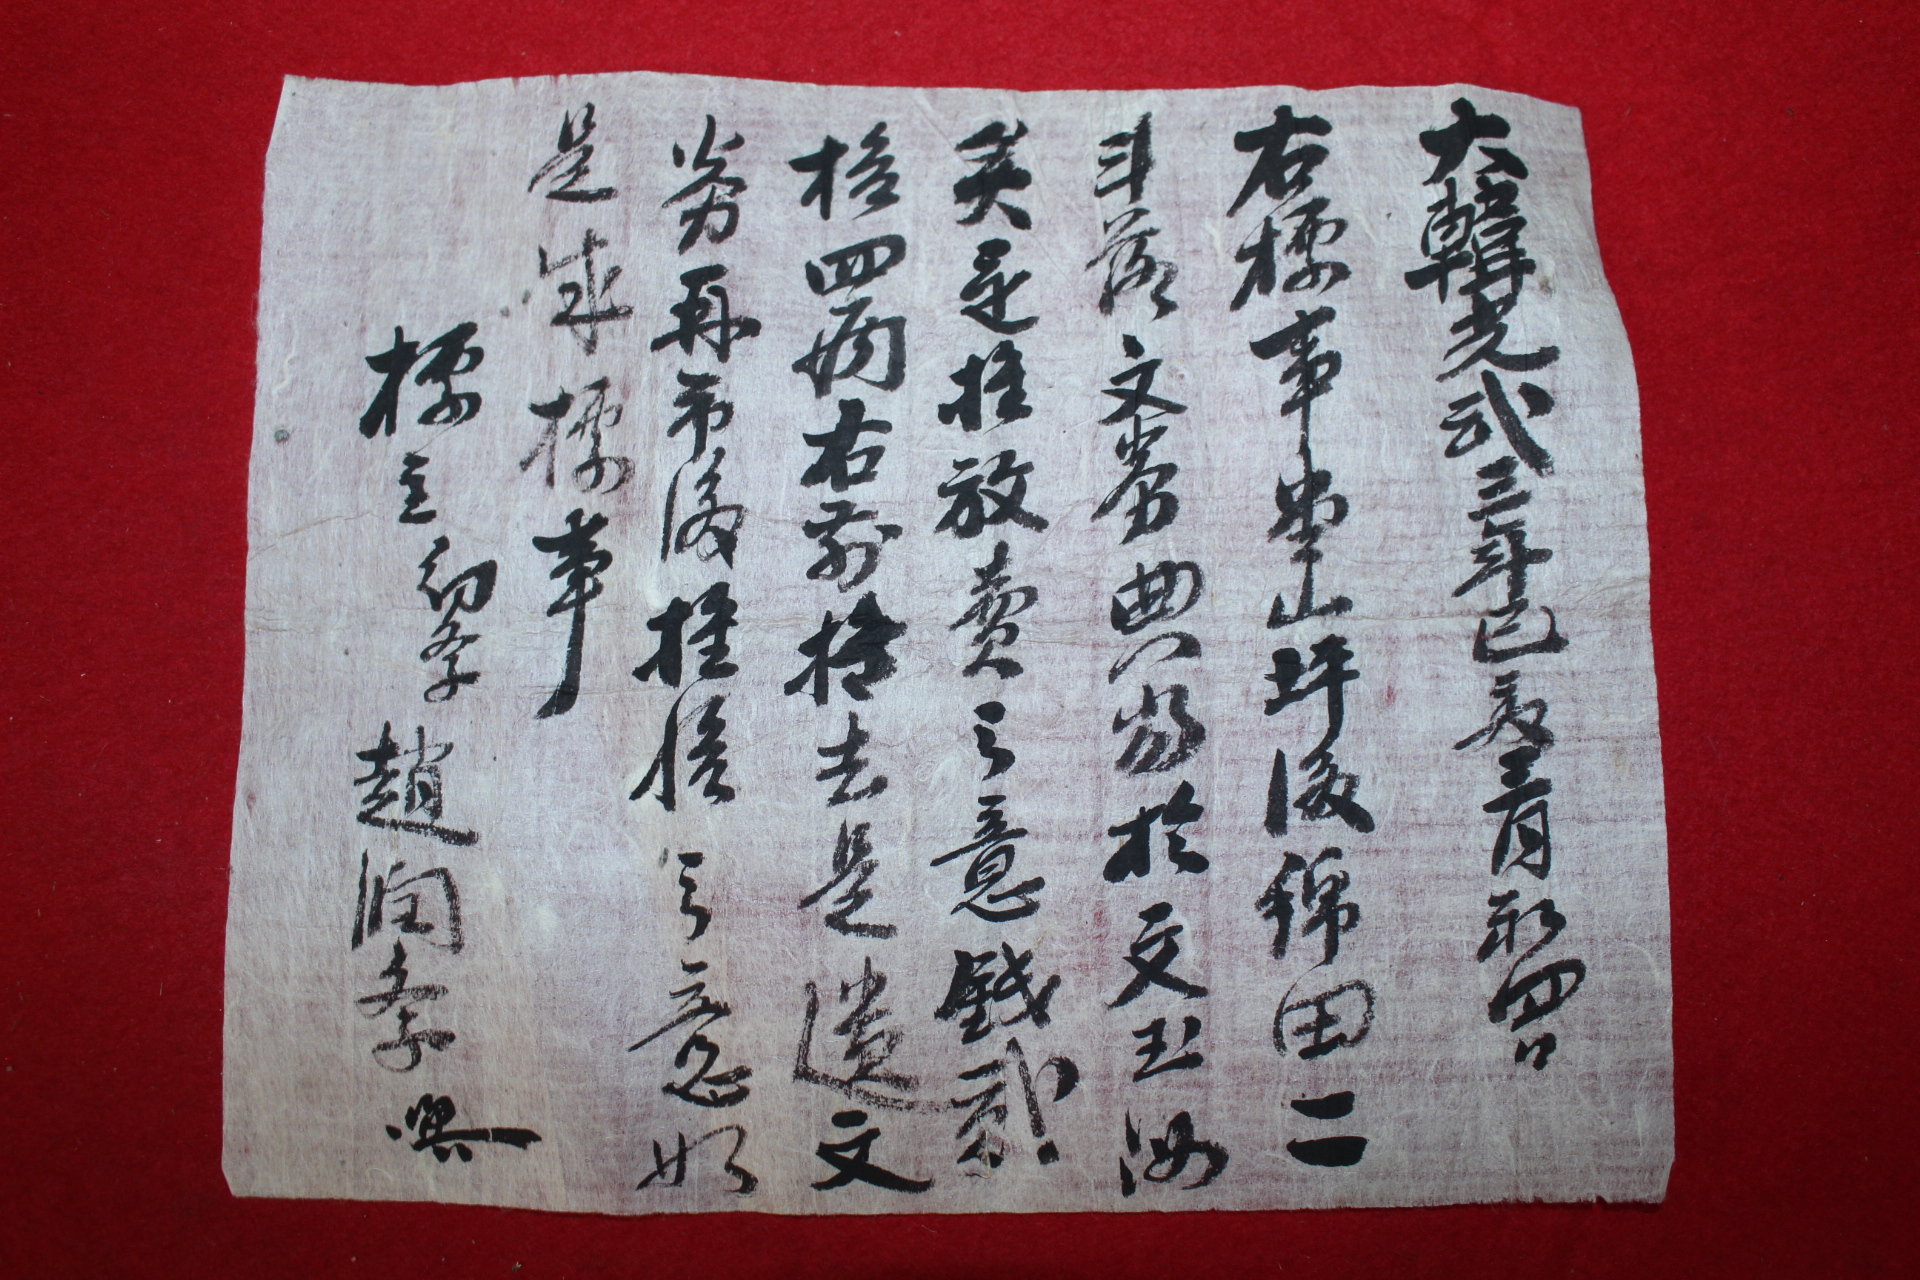 大韓光武三年己亥三月初四日
右標事堂山坪後錦田二
斗落文券典當於文主汝
矣是在放賣之意錢貳
拾四兩右前捧去是遣文
券再市後推給之意如
是成標事
標主幼學趙潤學